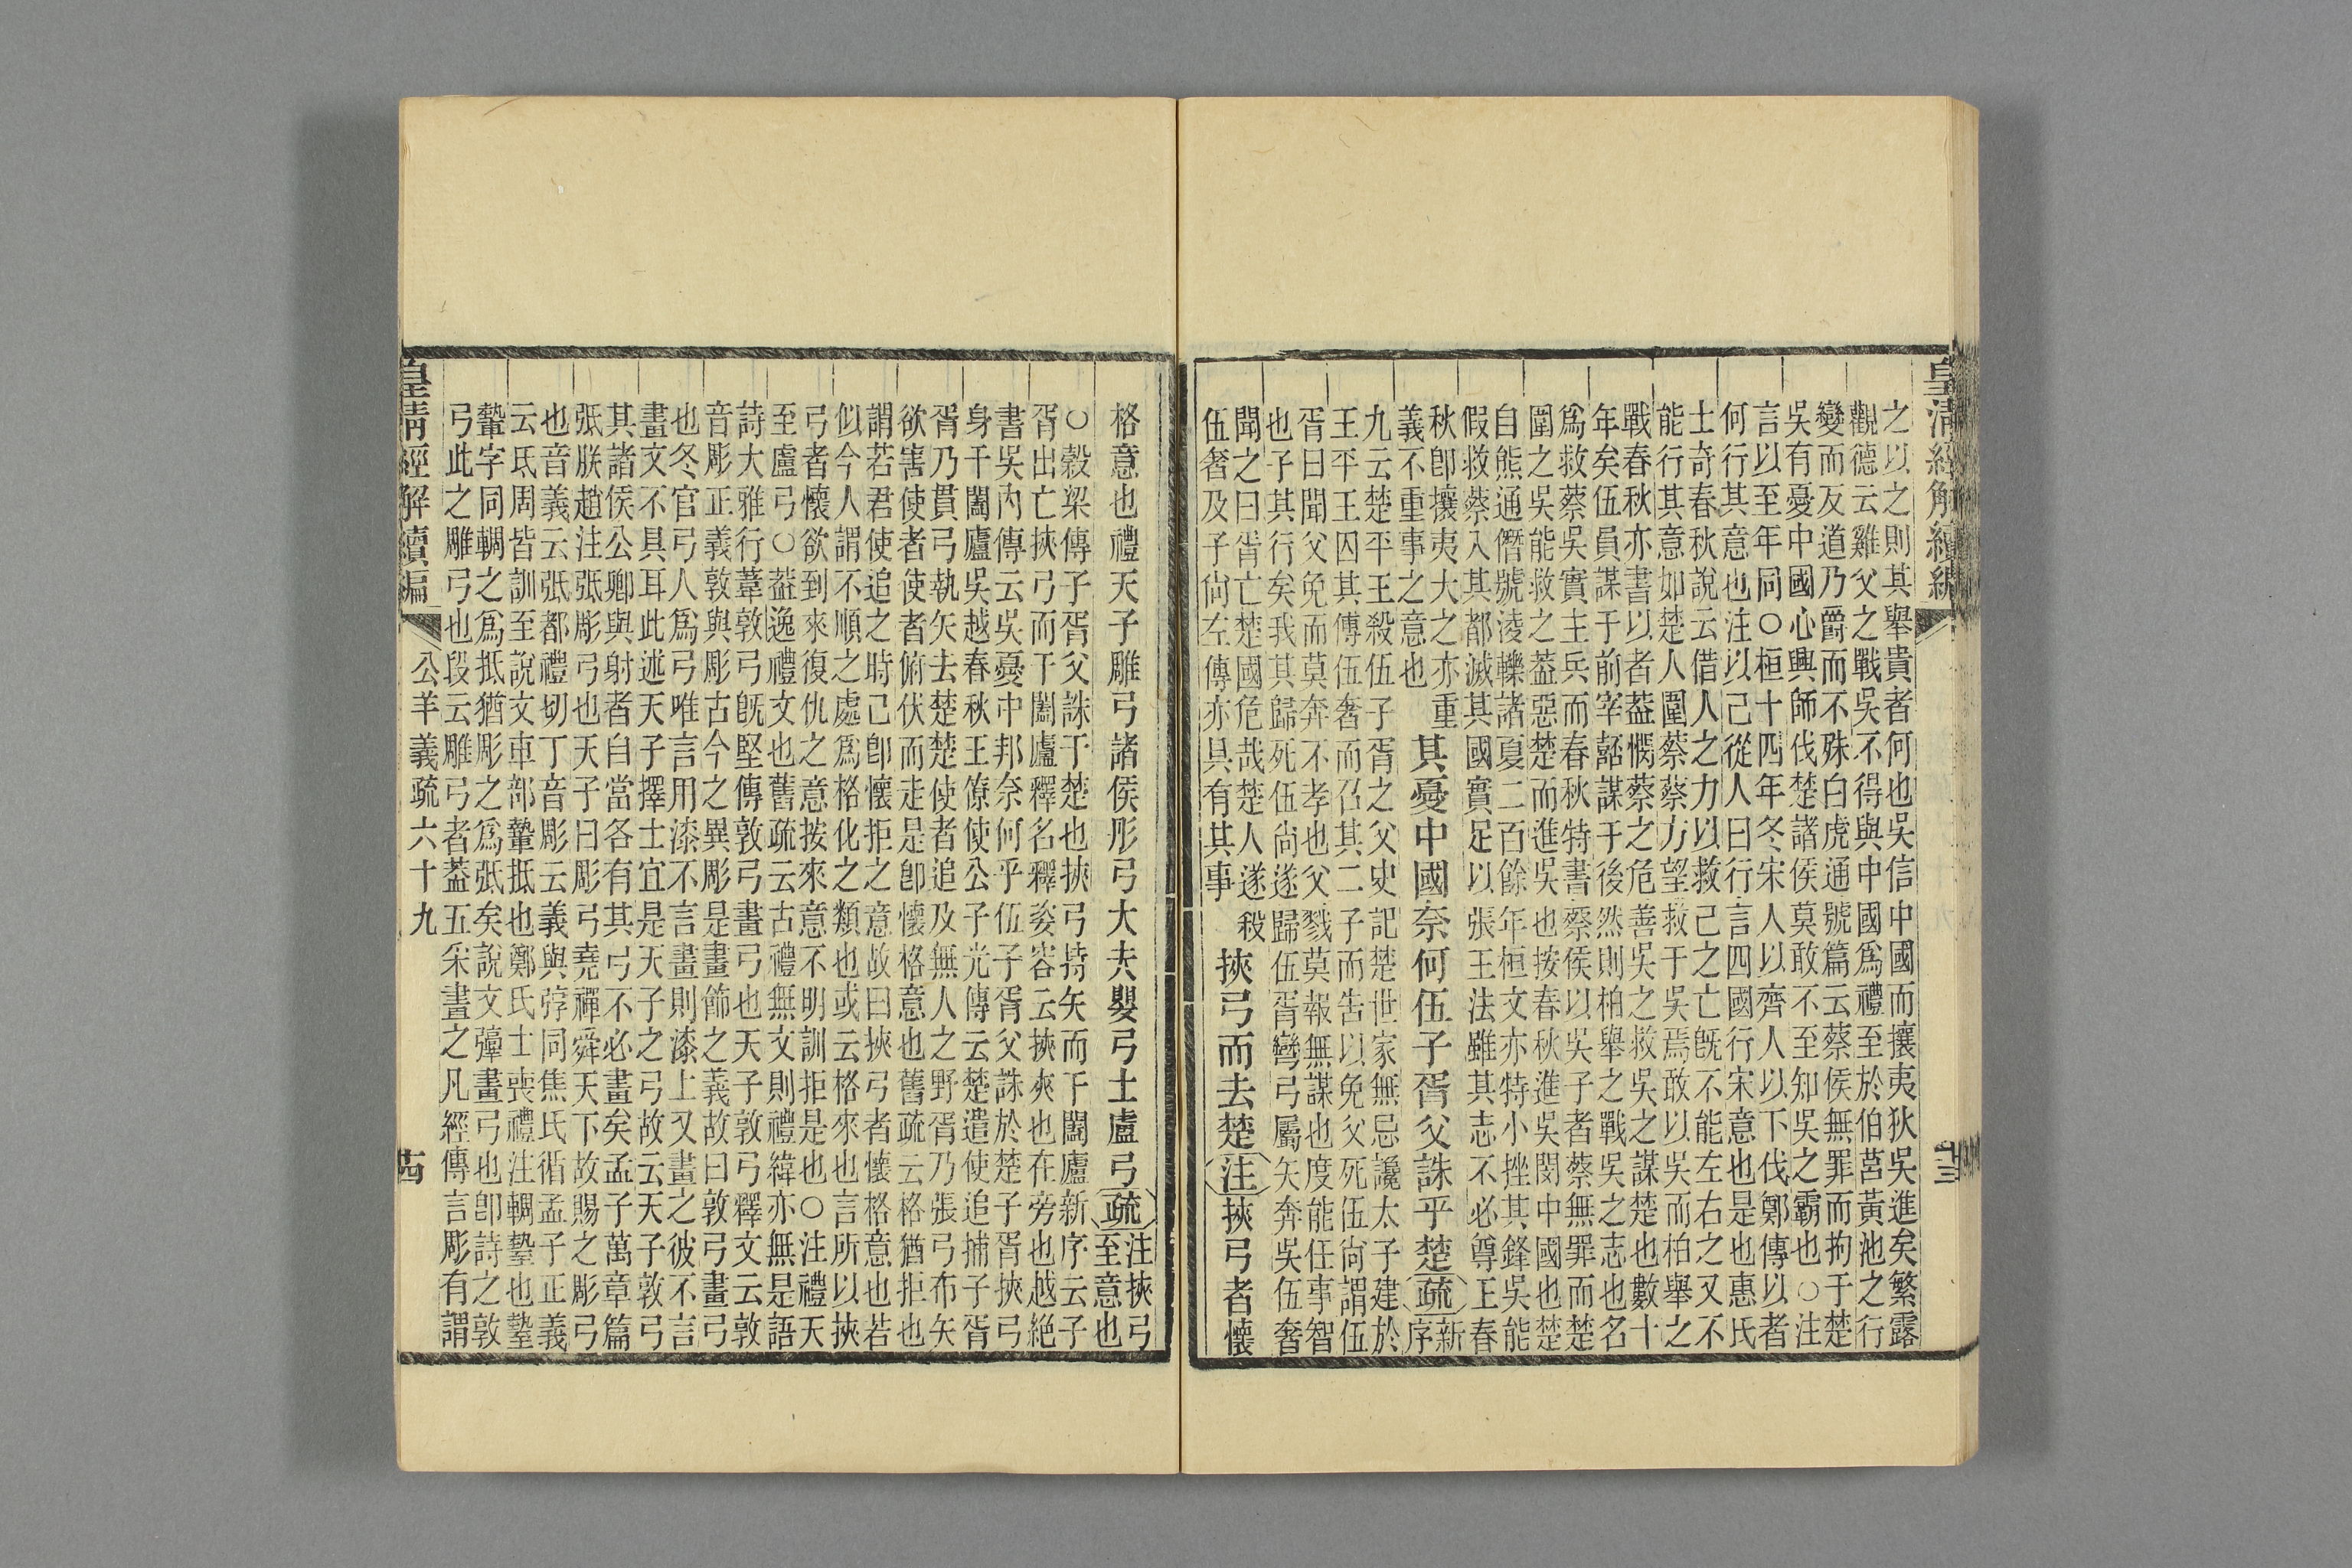 皇清經解續編
之以之則其舉貴者何也吳信中國而攘夷狄吳進矣繁露
觀德云雞父之戰吳不得與中國爲禮至於伯莒黃池之行
變而反道乃爵而不殊白虎通號篇云蔡侯無罪而拘于楚
吳有憂中國心興師伐楚諸侯莫敢不至知吳之霸也○注
言以至年同○桓十四年冬宋人以齊人以下伐鄭傳以者
何行其意也注以己從人曰行言四國行宋意也是也惠氏
士奇春秋說云借人之力以救己之亡旣不能左右之又不
能行其意如楚人圍蔡蔡方望救于吳焉敢以吳而柏舉之
戰春秋亦書以者蓋憫蔡之危善吳之救吳之謀楚也數十
年矣伍員謀于前宰嚭謀于後然則柏舉之戰吳之志也名
爲救蔡吳實主兵而春秋特書蔡侯以吳子者蔡無罪而楚
圍之吳能救之蓋惡楚而進吳也按春秋進吳閔中國也楚
自熊通僭號淩轢諸夏二百餘年桓文亦特小挫其鋒吳能
假救蔡入其都滅其國實足以張王法雖其志不必尊王春
秋卽攘夷大之亦重
義不重事之意也
其憂中國奈何伍子胥父誅乎楚
疏
新
序
九云楚平王殺伍子胥之父史記楚世家無忌讒太子建於
王平王囚其傅伍奢而召其二子而告以免父死伍尙謂伍
胥曰聞父免而莫奔不孝也父戮莫報無謀也度能任事智
也子其行矣我其歸死伍尙遂歸伍胥彎弓屬矢奔吳伍奢
聞之曰胥亡楚國危哉楚人遂殺
伍奢及子尙左傳亦具有其事
挾弓而去楚
注
挾弓者懷
十三
格意也禮天子雕弓諸侯彤弓大夫嬰弓士盧弓
疏
注挾弓
至意也
○穀梁傳子胥父誅于楚也挾弓持矢而干闔廬新序云子
胥出亡挾弓而干闔廬釋名釋姿容云挾夾也在旁也越絕
書吳內傳云吳憂中邦奈何乎伍子胥父誅於楚子胥挾弓
身干闔廬吳越春秋王僚使公子光傳云楚遣使追捕子胥
胥乃貫弓執矢去楚楚使者追及無人之野胥乃張弓布矢
欲害使者使者俯伏而走是卽懷格意也舊疏云格猶拒也
謂若君使追之時己卽懷拒之意故曰挾弓者懷格意也若
似今人謂不順之處爲格化之類也或云格來也言所以挾
弓者懷欲到來復仇之意按來意不明訓拒是也○注禮天
至盧弓○蓋逸禮文也舊疏云古禮無文則禮緯亦無是語
詩大雅行葦敦弓旣堅傳敦弓畫弓也天子敦弓釋文云敦
音彫正義敦與彫古今之異彫是畫飾之義故曰敦弓畫弓
也冬官弓人爲弓唯言用漆不言畫則漆上又畫之彼不言
畫文不具耳此述天子擇士宜是天子之弓故云天子敦弓
其諸侯公卿與射者自當各有其弓不必畫矣孟子萬章篇
弤朕趙注弤彫弓也天子曰彫弓堯禪舜天下故賜之彫弓
也音義云弤都禮切丁音彫云義與弴同焦氏循孟子正義
云氐周皆訓至說文車部𨎌抵也鄭氏士喪禮注輖墊也墊
𨎌字同輖之爲抵猶彫之爲弤矣說文弴畫弓也卽詩之敦
弓此之雕弓也段云雕弓者蓋五采畫之凡經傳言彫有謂
皇淸經解續編
公羊義疏六十九
十四